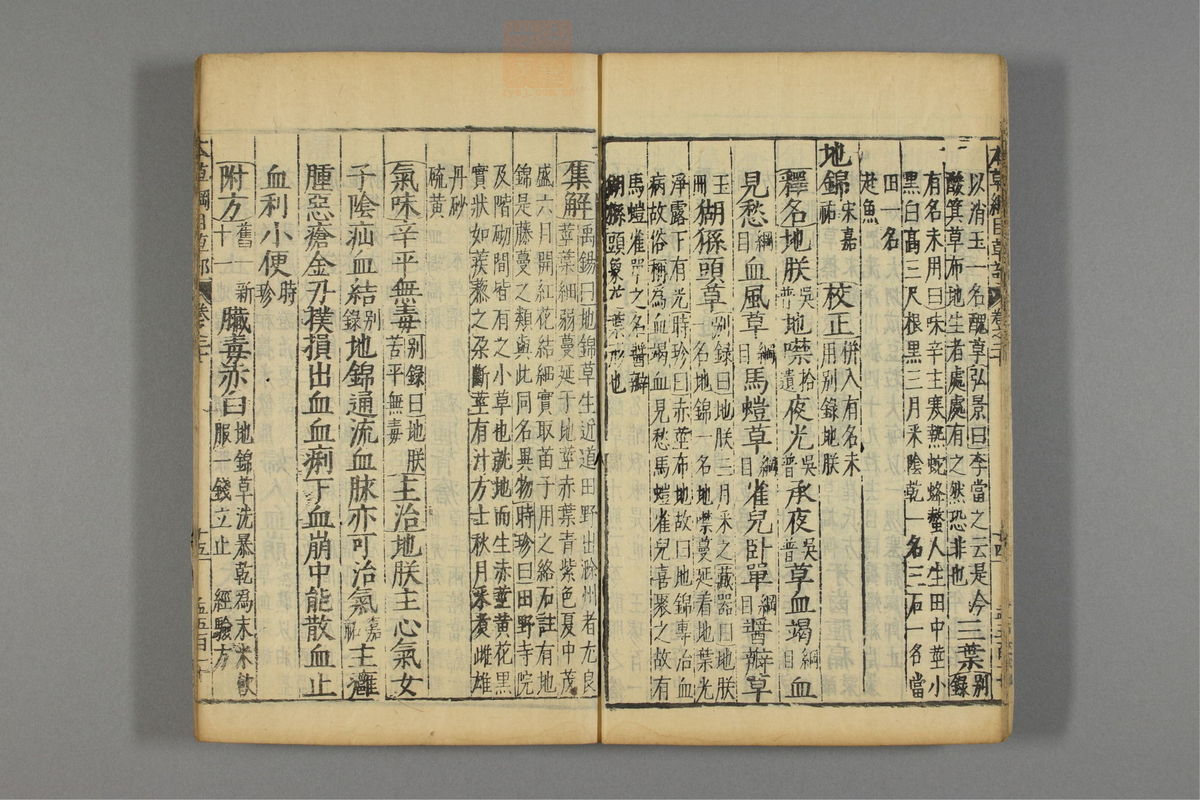 以消玉一名醜草弘景曰李當之云是今三葉別
酸箕草布地生者處處有之然恐非也錄
有名未用曰味辛主寒熱蛇蜂螫人生田中莖小
黑白高三尺根黑三月采陰乾一名三石一名當
田一名
赴魚
地錦宋嘉祐校正併入有名未用別錄地朕
釋名地朕吳普地噤拾遺夜光吳普承夜吳普草血竭綱目血
見愁綱目血風草綱目馬螘草綱目雀兒卧單綱目醬瓣草
玉冊猢猻頭草別錄曰地朕三月采之藏器曰地朕
一名地錦一名地噤蔓延着地葉光
淨露下有光時珍曰赤莖布地故曰地錦專治血
病故俗稱為血竭血見愁馬螘雀兒喜聚之故有
馬螘雀單之名醬瓣
猢猻頭象花葉形也
集解禹錫曰地錦草生近道田野出滁州者尤良
莖葉細弱蔓延于地莖赤葉青紫色夏中茂
盛六月開紅花結細實取苗子用之絡石註有地
錦是藤蔓之類與此同名異物時珍曰田野寺院
及階砌間皆有之小草也就地而生赤莖黃花黑
實狀如蒺藜之朵斷莖有汁方士秋月采煑雌雄
丹砂
硫黃
氣味辛平無毒别錄曰地朕苦平無毒主治地朕主心氣女
子陰疝血結别錄地錦通流血脉亦可治氣嘉祐主癰
腫惡瘡金刃撲損出血血痢下血崩中能散血止
血利小便時珍
附方舊一新十一臟毒赤白地錦草洗暴乾為末米飲
服一錢立止經驗方